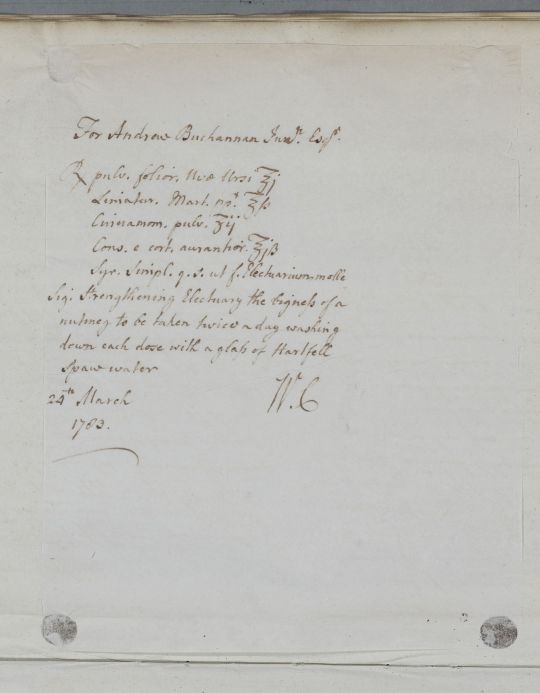 For Andrew Buchannan Junr. Esqr.
℞ pulv. folior. Uvæ Ursi ℥j
Limatur. Mart. ppt. ℥ß
Cinnamom. pulv. ʒij
Cons. e cort. aurantior. ℥jß
Syr. Simpl. q. s. ut f. Electuarium molle
Sig. Strengthening Electuary the bigness of a
nutmeg to be taken twice a day washing
down each dose with a glass of Hartfell
Spaw water
24th March
1783.
W. C